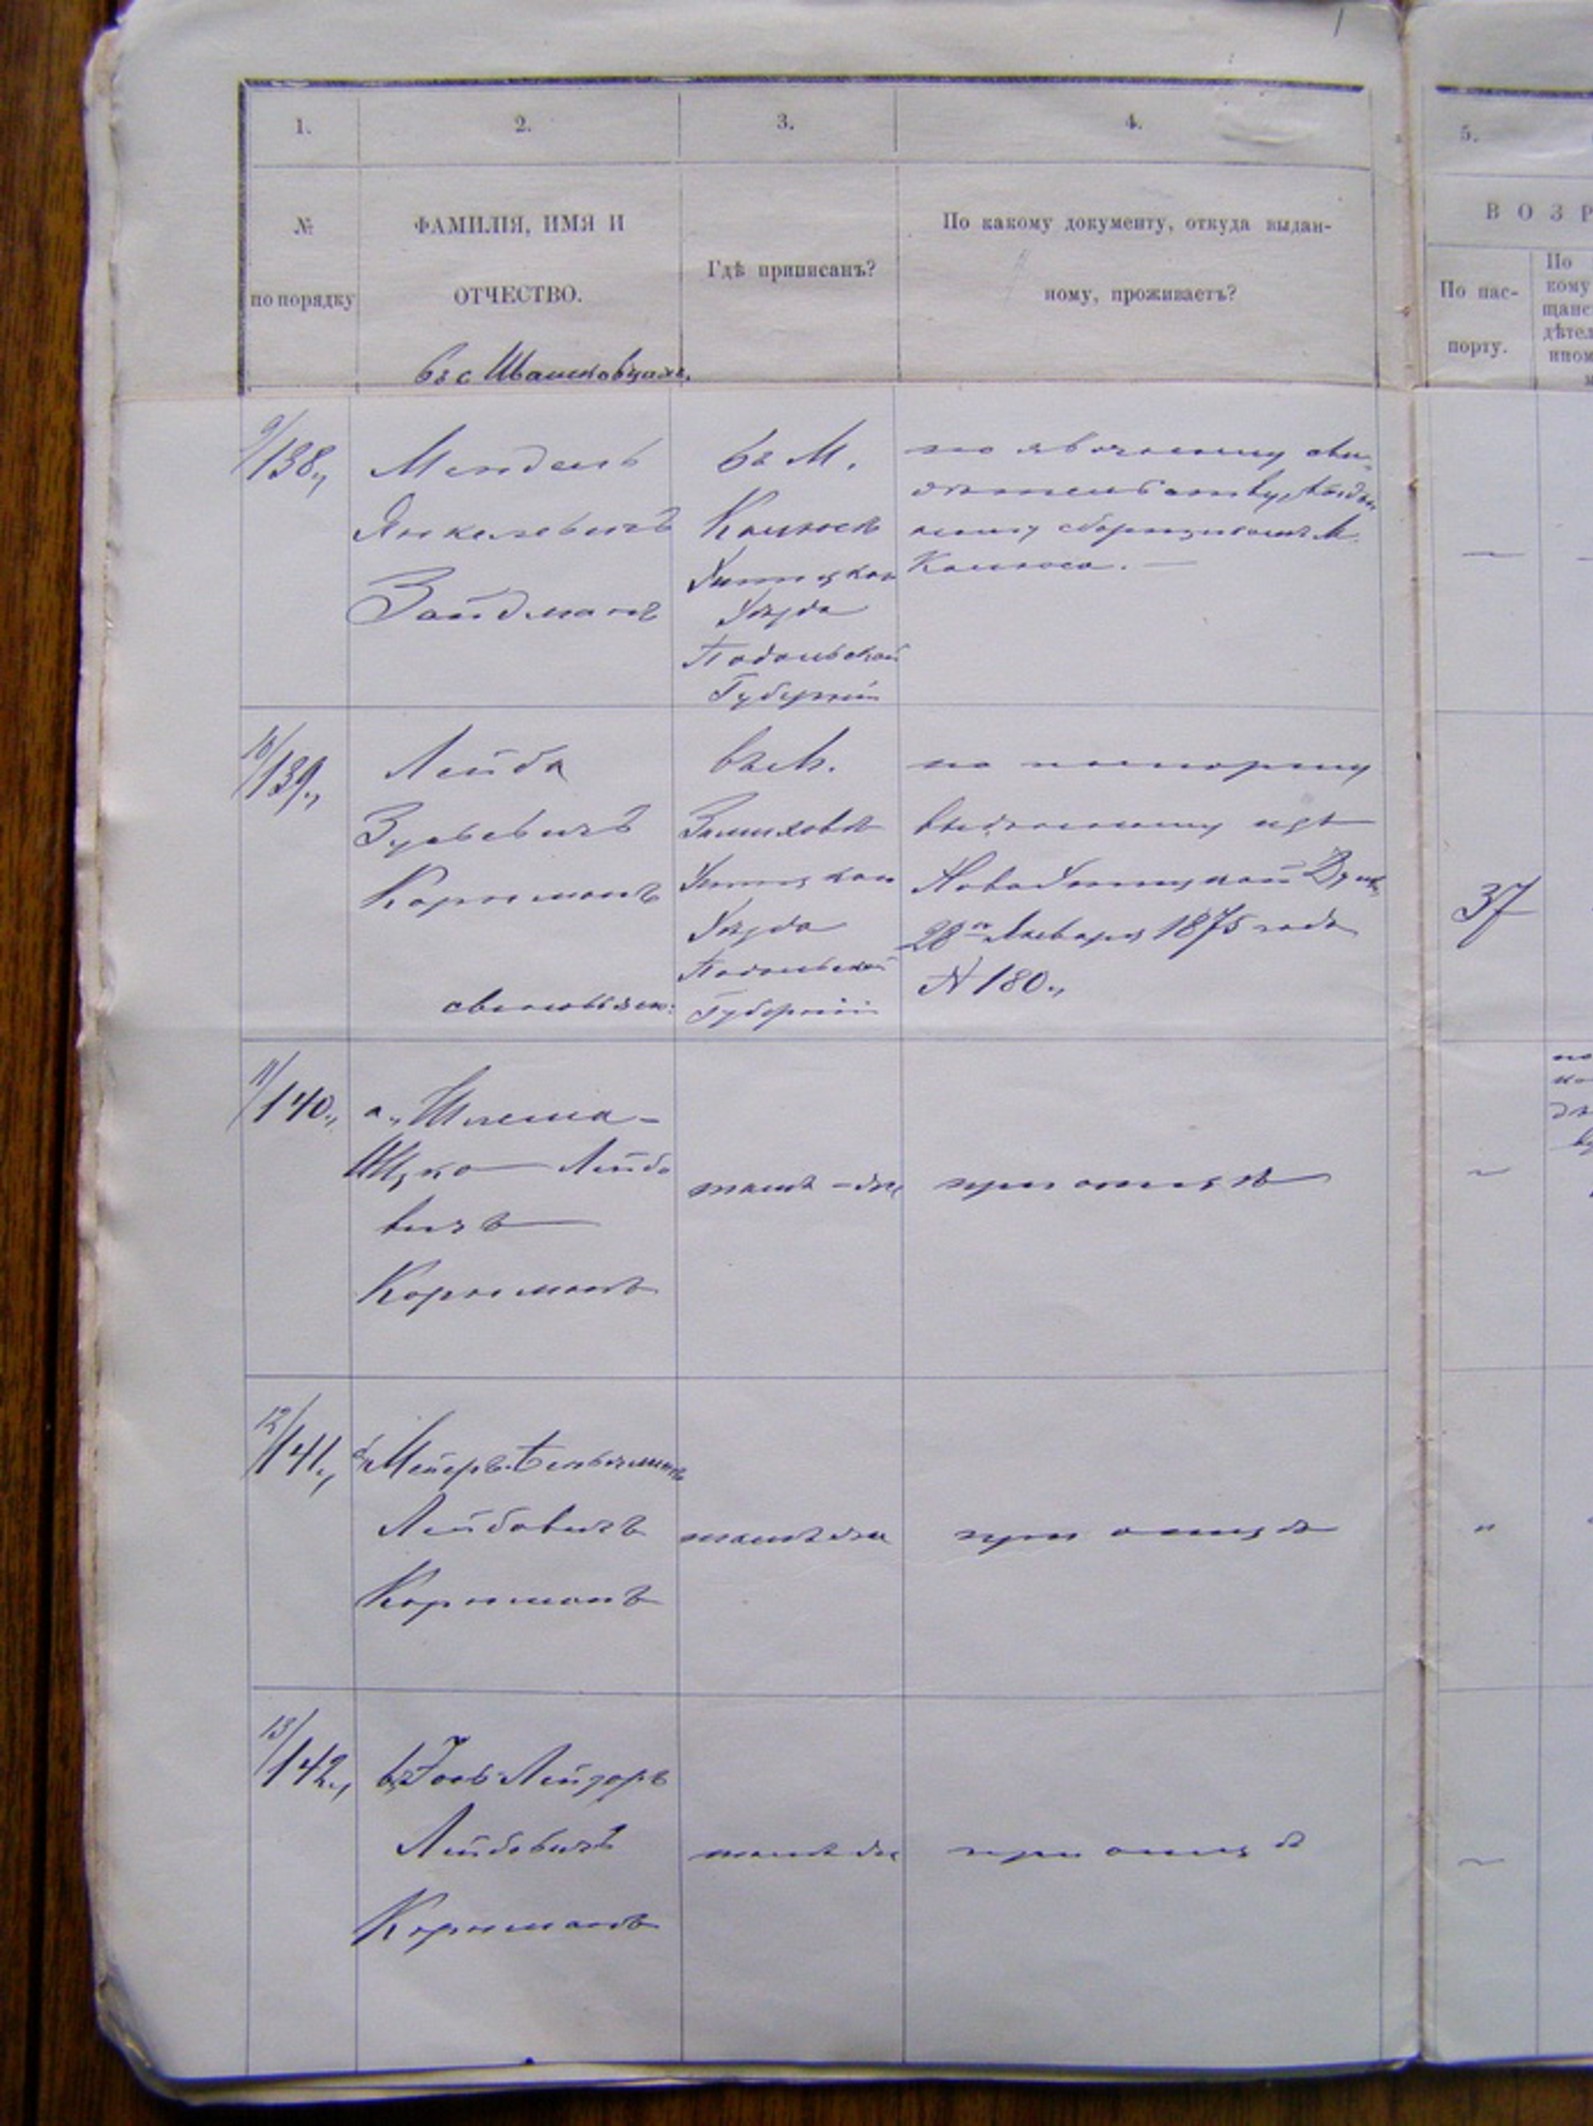 1. 2. 3. 4. 5.
№ ФАМИЛІЯ, ИМЯ И Гдѣ приписанъ? По какому документу, откуда выдан-
по порядку ОТЧЕСТВО. ному, проживаетъ?
ВОЗР
По пас-
порту.
По
кому
щанс
дѣтел
въ с Ивашковцахъ.
9/138„
Мендель
Янкелевичъ
Зайдманъ
въ М.
Калюсѣ
Ушицкаго
Уѣзда
Подольской
Губерніи
по явочному сви-
дѣтельству, выдан-
ному сборщикомъ М.
Калюса. —
10/139.,
Лейба
Зусьевичъ
Корнманъ
сыновья его:
въ М.
Замиховѣ
Ушицкаго
Уѣзда
Подольской
Губерніи
по паспорту
выданному изъ
НовоУшицкой Думы
28го Января 1875 года
№ 180.,
37
11/140.,
а., Шлема-
Ицко Лейбо
вичъ
Корнманъ
тамъ-же
при отцѣ
12/141.,
б., Мейеръ-Беньяминъ
Лейбовичъ
Корнманъ
тамъ же
при отцѣ
"
13/142.,
в., Лейзоръ
Лейбовичъ
Корнманъ
тамъ же
при отцѣ